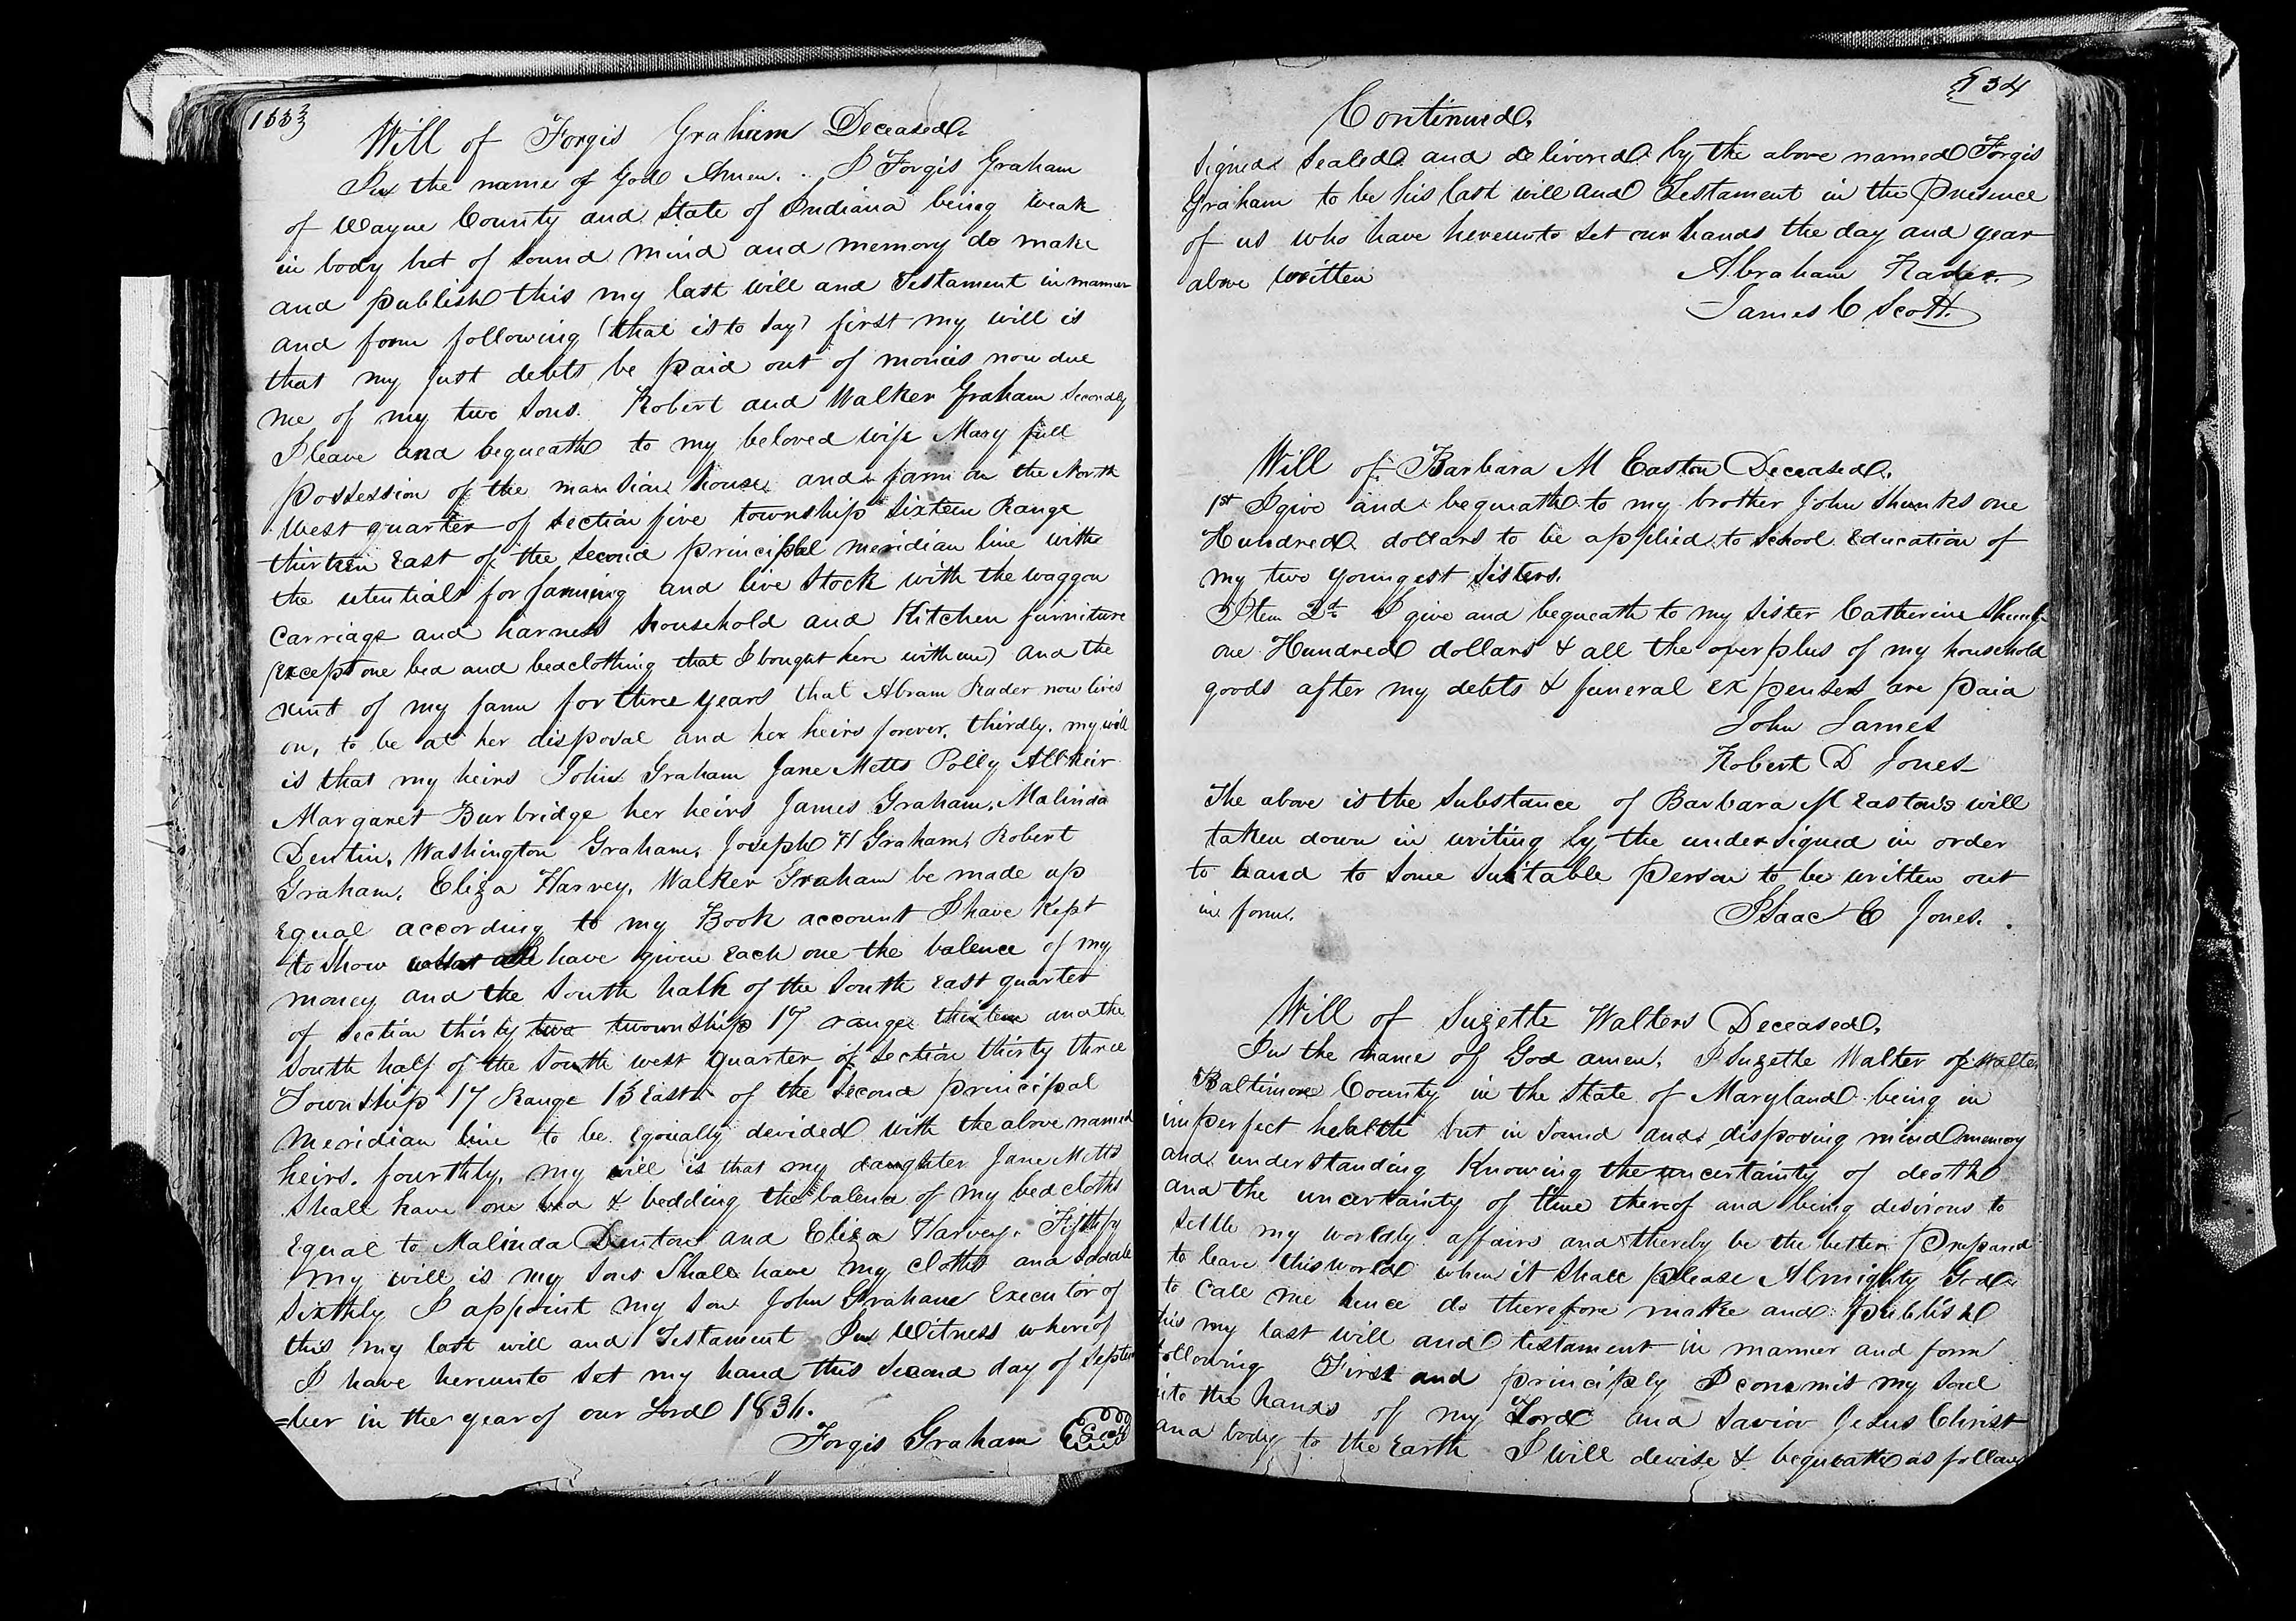 133
Will of Forgis Graham Deceased.
In the name of God Amen. . I Forgis Graham
of Wayne County and State of Indiana being weak
in body but of sound mind and memory do make
and publish this my last will and Testament in manner
and form following (that is to say) first my will is
that my just debts be paid out of monies now due
me of my two sons. Robert and Walker Graham Secondly
I leave and bequeath to my beloved wife Mary full
possession of the mansion house and farm on the North
West quarter of section five township sixteen Range
thirteen East of the second principal meridian line with
the utentials for farming and live stock with the waggon
Carriage and harness household and Kitchen furniture
(except one bed and bedclothing that I bought here with me) and the
rent of my farm for three years that Abram Rader now lives
on, to be at her disposal and her heirs forever, thirdly, my will
is that my heirs John Graham Jane Metts Polly
Margaret Burbridge her heirs James Graham, Malinda
Dentin, Washington Graham, Joseph H Graham, Robert
Graham, Eliza Harvey, Walker Graham be made up
equal according to my Book account I have Kept
to show have given each one the balence of my
money and the South half of the South East quarter
of section thirty two twownship 17 range thirteen and the
South half of the South west quarter of section thirty three
Township 17 Range 13 East of the second principal
meridian line to be Eqoually devided with the above named
heirs. fourthly, my will is that my daughter Jane Metts
shall have one bed & bedding the balence of my bed cloths
Equal to Malinda Denton and Eliza Harvey. Fifthly
my will is my sons shall have my cloths and saddle
Sixthly I appoint my son John Graham Executor of
this my last will and Testament In Witness whereof
I have hereunto set my hand this second day of Septem
=ber in the year of our Lord 1836.
Forgis Graham Seal
134
Continued.
Signed Sealed and delivered by the above named Forgis
Graham to be his last will and Testament in the Presence
of us who have hereunto set our hands the day and year
above written
Abraham Rader.
James C Scott.
Will of Barbara M Easton Deceased.
1st I give and bequeath to my brother John Shunks one
Hundred dollars to be applied to school Education of
my two youngest sisters.
Item 2d I give and bequeath to my sister Catherine Shunk
one Hundred dollars & all the overplus of my household
goods after my debts & funeral expenses are paid
John James
Robert D Jones
The above is the substance of Barbara M Eastons will
taken down in writing by the undersigned in order
to hand to some suitable person to be written out
in form.
Isaac E Jones.
Will of Suzette Walters Deceased.
In the name of God amen. I Suzette Walter of Walter
Baltimore County in the State of Maryland being in
imperfect health but in sound and disposing mind memory
and understanding Knowing the uncertainty of death
and the uncertainty of time thereof and being desirous to
settle my worldly affairs and thereby be the better prepared
to leave this world when it shall please Almighty God
to call me hence do therefore make and publish
this my last will and testament in manner and form
following First and principly I commit my soul
into the hands of my Lord and Savior Jesus Christ
and body to the Earth I will devise & bequeath as follows